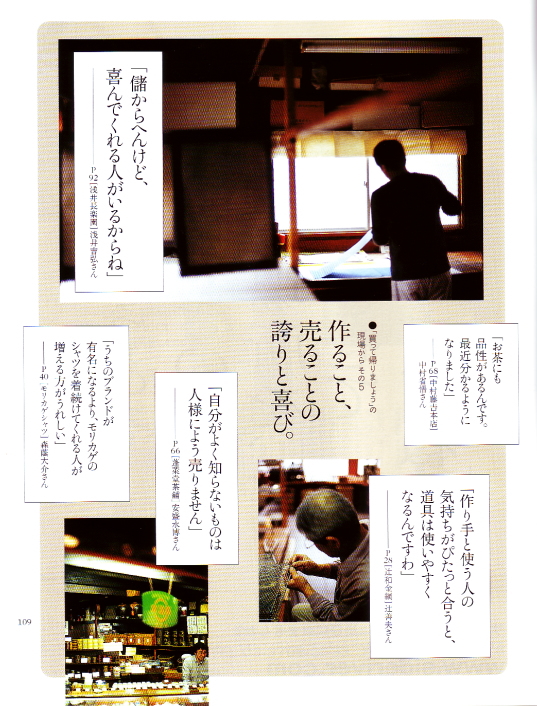 「儲からへんけど、
喜んでくれる人がいるからね」
P92「浅井長楽園」浅井
さん
●「買って帰りましょう」の
現場から その5
作ること、
売ることの
誇りと喜び。
「お茶にも
品性があるんです。
最近分かるように
なりました」
P68「中村藤吉本店」
中村省悟さん
「うちのブランドが
有名になるより、モリカゲの
シャツを着続けてくれる人が
増える方がうれしい」
P40「モリカゲシャツ」森蔭大介さん
「自分がよく知らないものは
人様によう売りません」
P66「蓬莱堂茶舗」安盛永博さん
「作り手と使う人の
気持ちがぴたっと合うと、
道具は使いやすく
なるんですわ」
P28「辻和金網」辻善夫さん
109